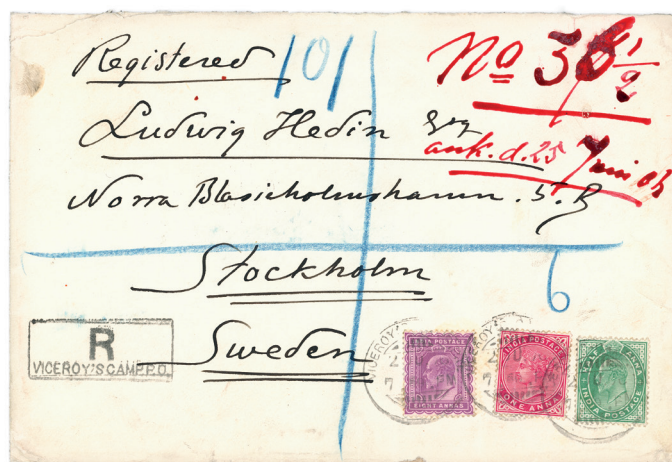 Registered
101
No 36 1/2
Ludwig Hedin Esq
ank. d. 25 Juni 06
Norra Blasieholmshamn. 5. B
Stockholm
6
Sweden
R
VICEROY'S CAMP P.O.
INDIA POSTAGE
EIGHT ANNAS
INDIA POSTAGE
ONE ANNA
HALF ANNA
INDIA POSTAGE
VICEROY'S
VICEROY'S